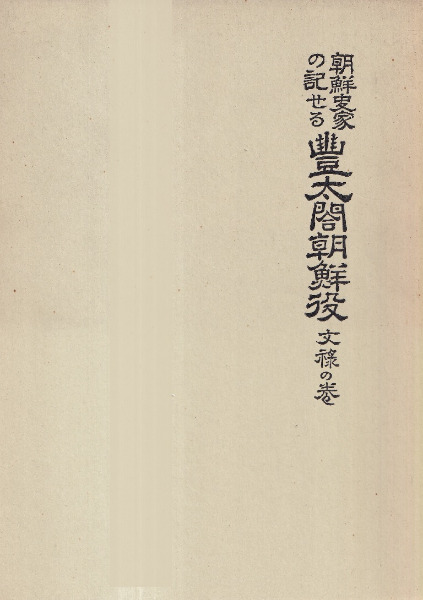 朝鮮史家
の記せる
豐太閤朝鮮役
文祿の卷